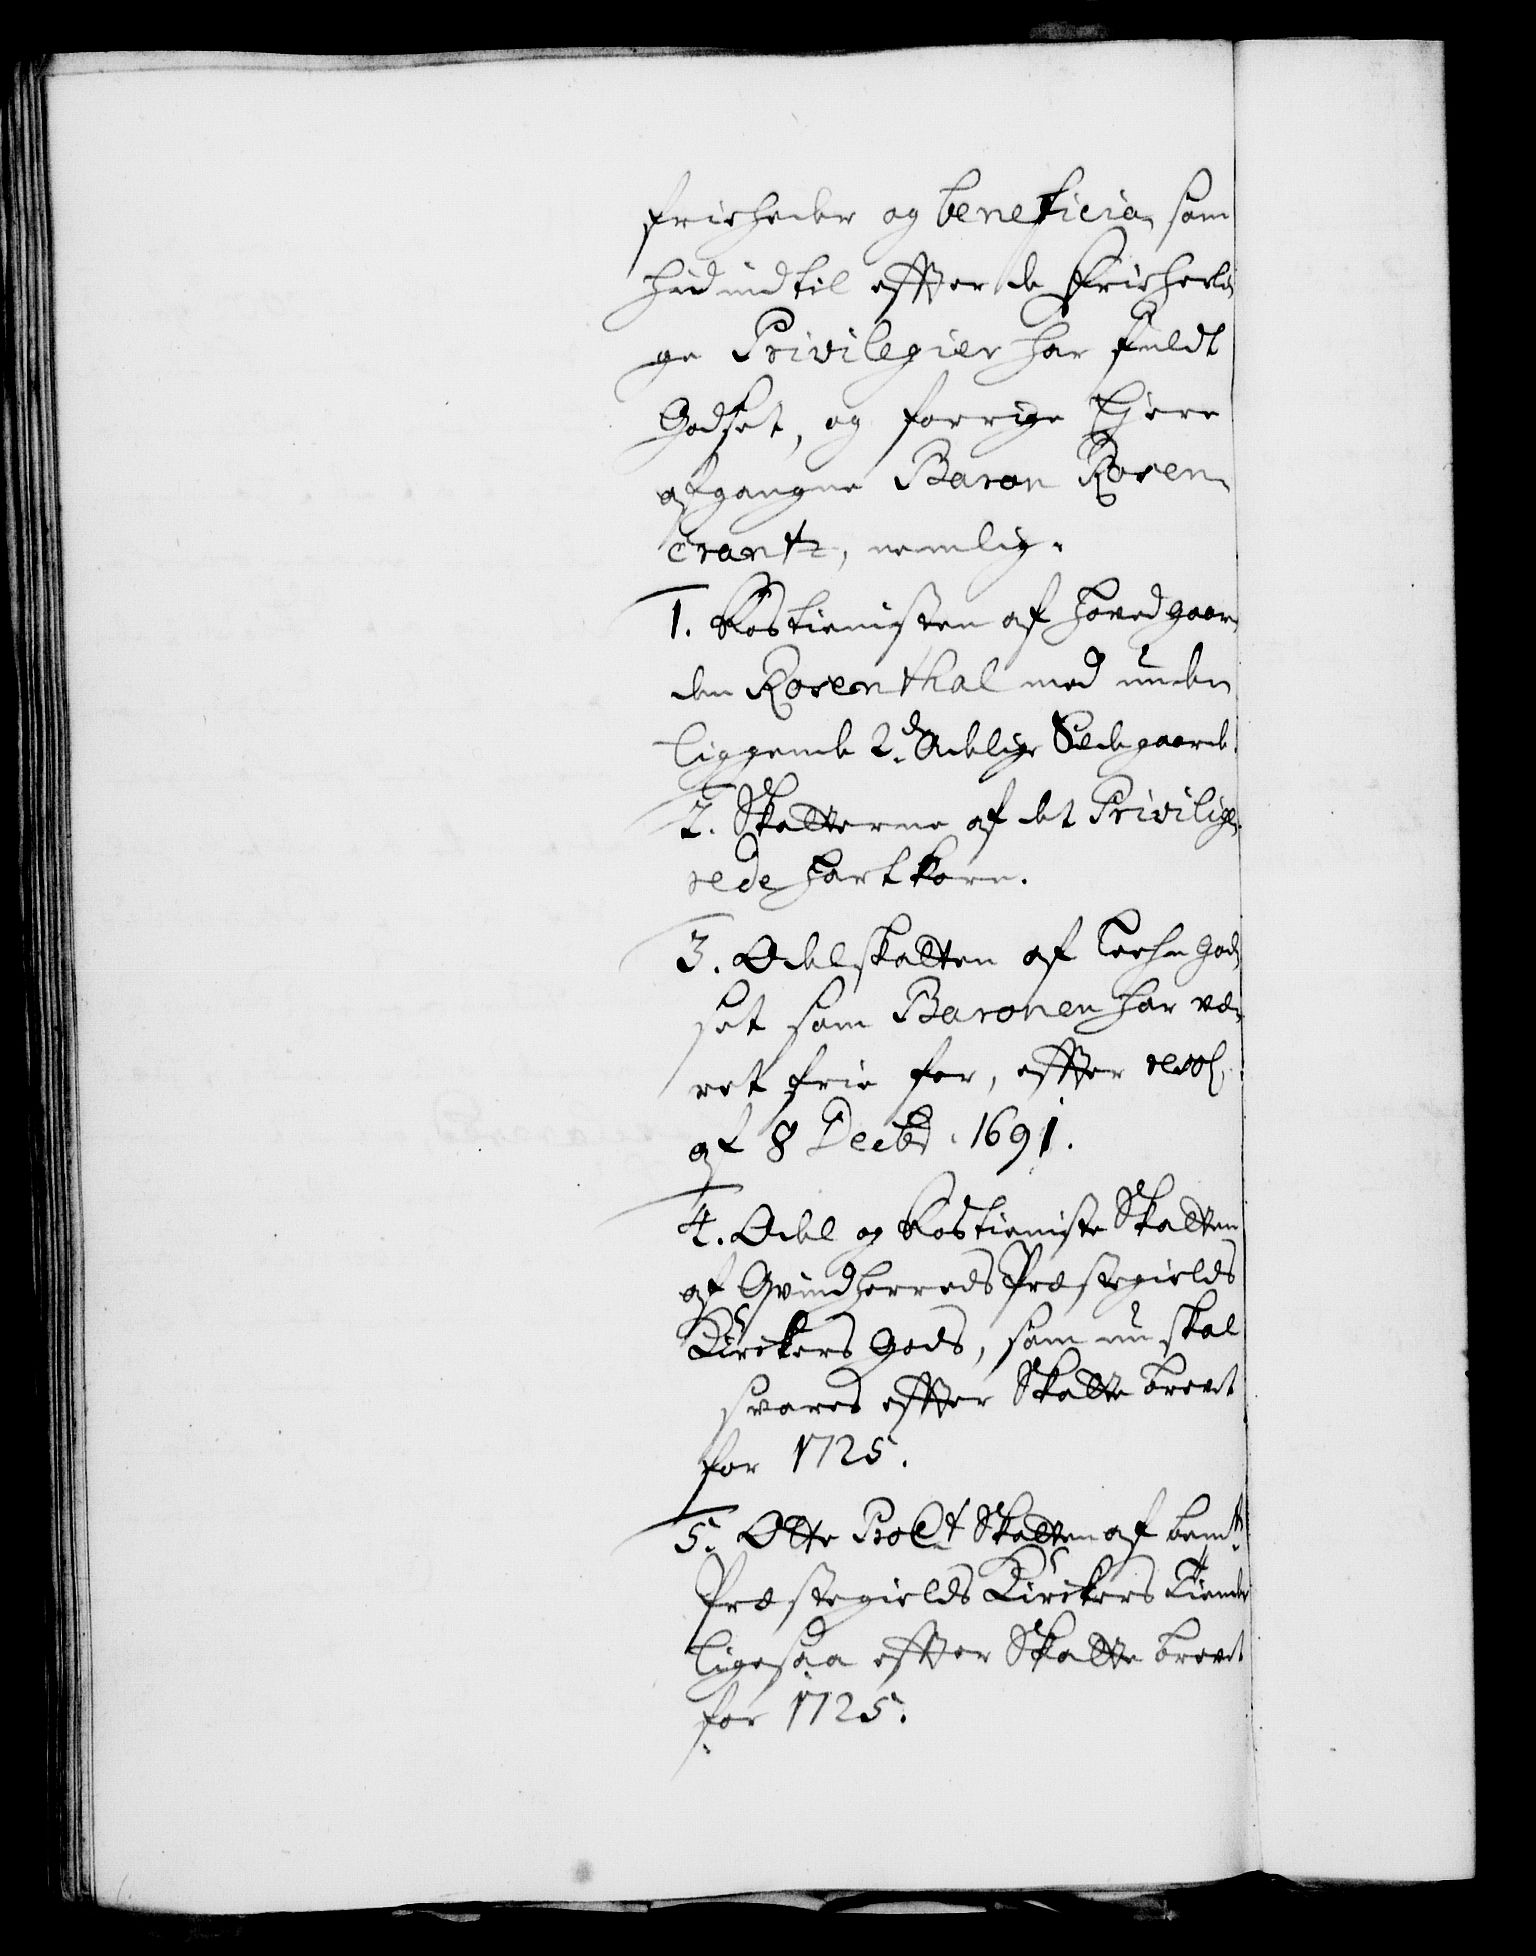 friheder og beneficia, som
hidindtil efter de Friherli
ge Privilegier har fuldt
Godset, og forrige Ejere
afgangne Baron Rosen-
crantz, nemlig.
1. Rostienisten af Hovedgaar
den Rosenthal med under
liggende 2de Adelige Sædegaarde.
2. Skatterne af det Privilige-
rede Hartkorn.
3. Odelskatten af Leehn God
set som Baronen har væ-
ret frie for, efter resol:
af 8 Decbr. 1691.
4. Odel og Rostieniste Skatten
af Qvindherreds Præstegields
Kirckers Gods, som nu skal
svares efter Skatte brevet
for 1725.
5. Otte ProCt Skatten af bemte
Præstegields Kirckers Tiender
ligesaa efter Skatte brevet
for 1725.